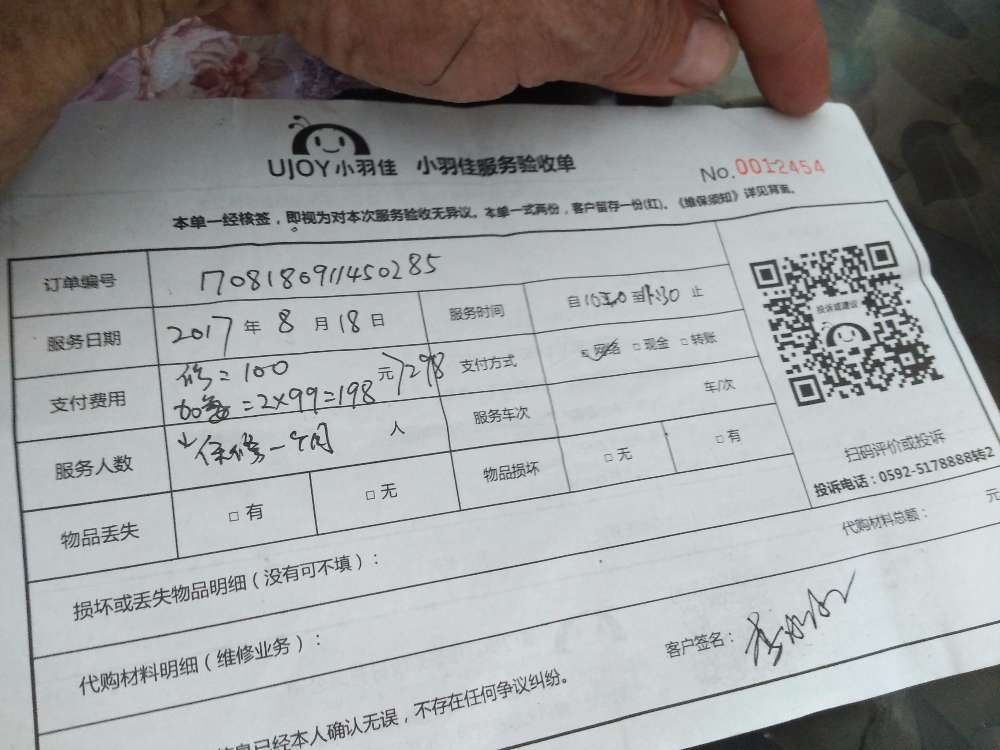 UJOY小羽佳 小羽佳服务验收单
No.0012454
本单一经核签，即视为对本次服务验收无异议。本单一式两份，客户留存一份(红)。《维保须知》详见背面。
订单编号 170818691145​0285
服务日期 2017年8月18日 服务时间 自 至 止
支付费用 修=100
=2×99=198元 298
支付方式 网络 □现金 □转账
服务人数 1人 保修一个月
服务车次 车/次
物品丢失 □有 □无 物品损坏 □无 □有
投诉或建议
扫码评价或投诉
投诉电话：0592-5178888转2
损坏或丢失物品明细（没有可不填）：
代购材料总额： 元
代购材料明细（维修业务）：
客户签名：
信息已经本人确认无误，不存在任何争议纠纷。